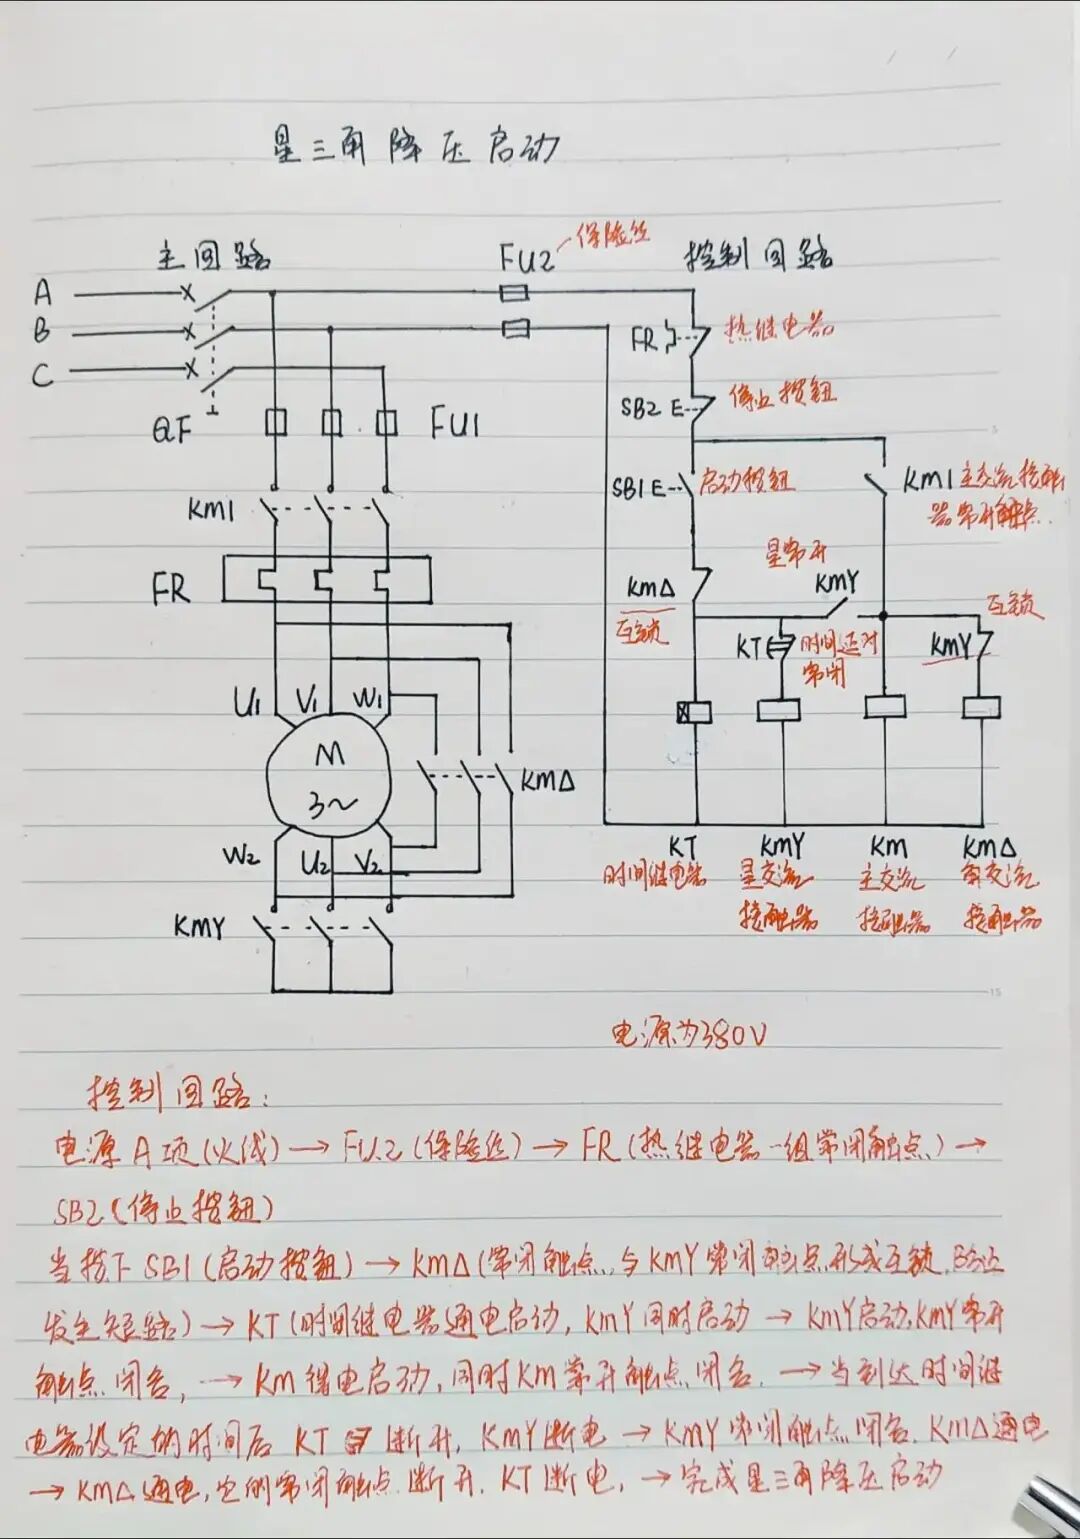 星三角降压启动
主回路
FU2
保险丝
控制回路
A
B
C
QF
FU1
FR
热继电器
SB2 E
停止按钮
SB1 E
启动按钮
KM1
主交流接触
器常开触点
KM1
FR
KMΔ
互锁
星常开
KMY
KT
时间延时
常闭
互锁
KMY
U1
V1
W1
M
3~
KMΔ
W2
U2
V2
KMY
KT
KMY
KM
KMΔ
时间继电器
星交流
接触器
主交流
接触器
角交流
接触器
电源为380V
控制回路:
电源A项(火线)→FU2(保险丝)→FR(热继电器一组常闭触点)→
SB2(停止按钮)
当按下SB1(启动按钮)→KMΔ(常闭触点,与KMY常闭触点形成互锁,防止
发生短路)→KT(时间继电器通电启动,KMY同时启动→KMY启动,KMY常开
触点闭合,→KM得电启动,同时KM常开触点闭合.→当到达时间继
电器设定的时间后KT断开,KMY断电→KMY常闭触点闭合.KMΔ通电
→KMΔ通电,它的常闭触点断开.KT断电,→完成星三角降压启动